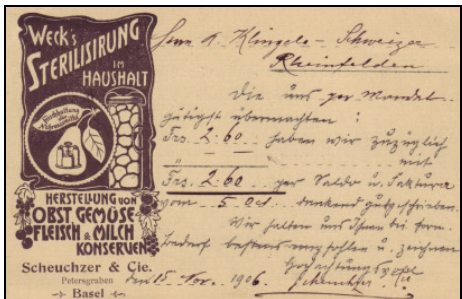 WECK's
STERILISIRUNG
IM
HAUSHALT
Frischhaltung
der
Nahrungsmittel
HERSTELLUNG VON
OBST GEMÜSE
FLEISCH & MILCH
KONSERVEN
Scheuchzer & Cie.
Petersgraben
Basel
Herrn A. Klingele-Schweizer
Rheinfelden
Die uns per Mandat
gütigst übermachten:
Frs. 2.60 haben wir zuzüglich
mit
Frs. 2.60 per Saldo u. Faktura
vom 5. Okt. dankend gutgeschrieben.
Wir halten uns Ihnen bei fern.
bedarf bestens empfohlen u. zeichnen
Hochachtungsvoll
den 15 Nov. 1906. Scheuchzer & Cie